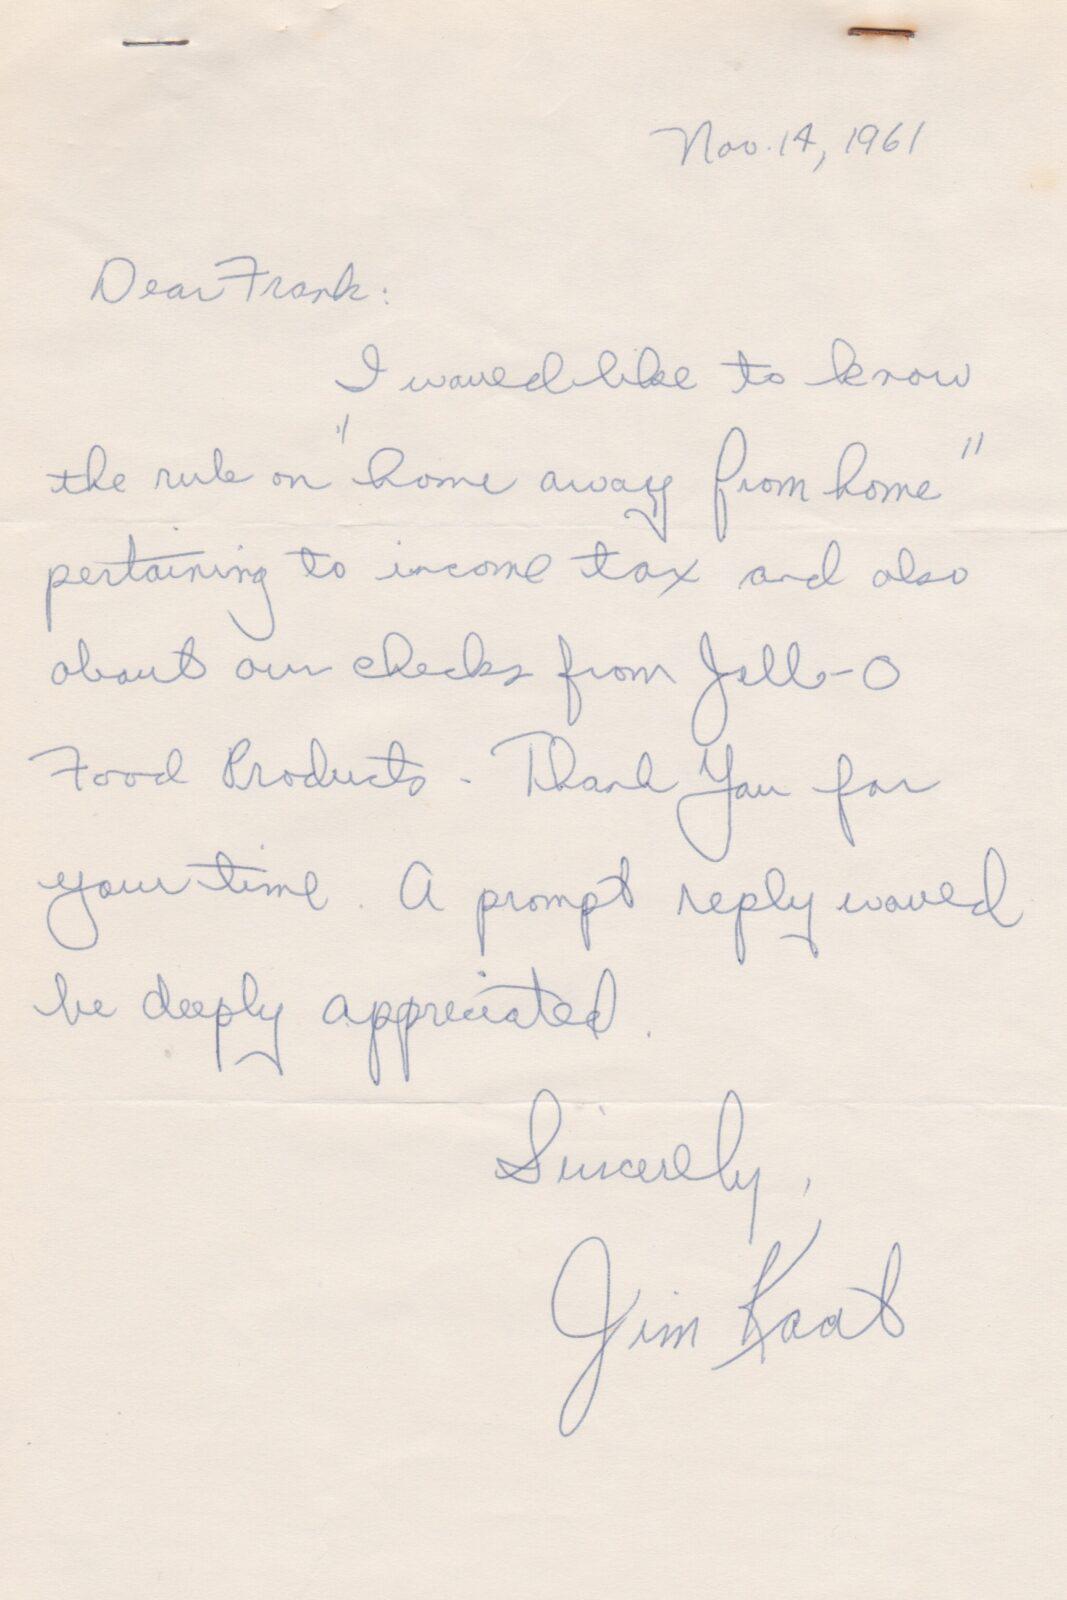 Nov. 14, 1961
Dear Frank:
I would like to know
the rule on "home away from home"
pertaining to income tax and also
about our checks from Jello-O
Food Products. Thank You for
your time. A prompt reply would
be deeply appreciated.
Sincerely,
Jim Kaat